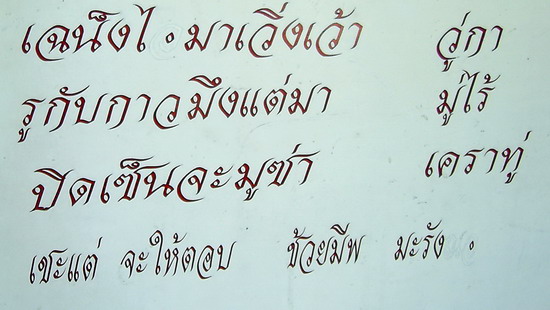 เฉน็งไ . มาเวิ่งเว้า วู่กา
รูกับกาวมึงแต่มา มู่ไร้
ปิดเซ็นจะมูซ่า เคราทู่
เชะแต่ จะให้ตอบ ช้วยมีพ มะรัง .